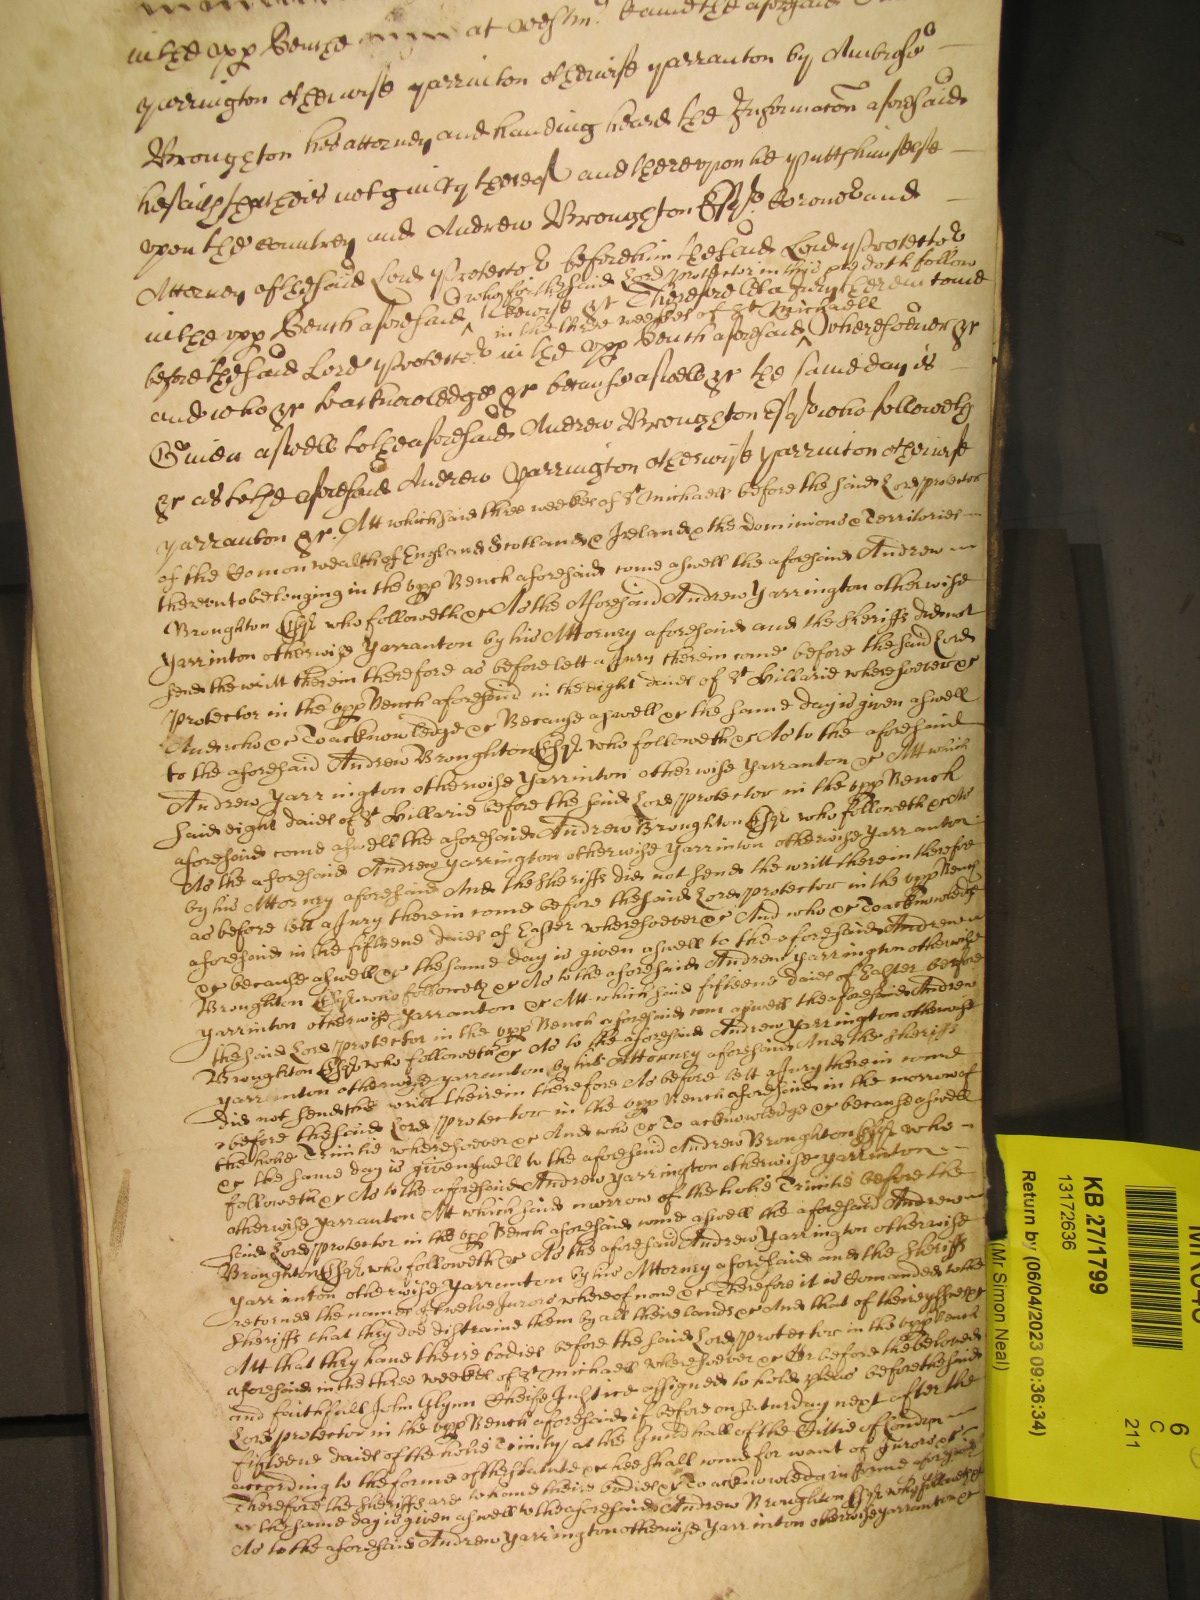 in the upp Bench at Westm. Came the aforesaid
yarrington otherwise yarrinton otherwise yarranton by Ambrose
Broughton his attorney and haveing heard the Informacon aforesaid
he saith that he is not guilty thereof and thereupon he putts himselfe
upon the countrey and Andrew Broughton Esqr. Coroner and
Attorney of the said Lord Protector before him the said Lord Protector
who for the said Lord Protector in this pt doth follow
in the upp Bench aforesaid ^ likewise &c Therefore let a Jury therein come
in the three weekes of St Michaell
before the said Lord Protector in the upp Bench aforesaid ^ wheresoever &c
and who &c to acknowledge &c because aswell &c the same day is
Given aswell to the aforesaid Andrew Broughton Esqr who followeth
&c as to the aforesaid Andrew yarrington otherwise yarrinton otherwise
yarranton &c. Att which said three weekes of St Michaell before the said Lord protector
of the Comonwealth of England Scotland & Ireland & the Dominions & Territories
thereunto belonging in the upp Bench aforesaid come aswell the aforesaid Andrew
Broughton Esqr who followeth &c As the Aforesaid Andrew yarrington otherwise
yarrinton otherwise yarranton by his Attorney aforesaid and the Sheriffs did not
send the writt therein therefore as before lett a Jury therein come before the said Lord
Protector in the upp Bench aforesaid in the eight daies of St Hillarie wheresoever &c
And who &c To acknowledge &c Because aswell &c the same day is given aswell
to the aforesaid Andrew Broughton Esqr who followeth &c As to the aforesaid
Andrew yarrington otherwise yarrinton otherwise yarranton &c Att which
said eight daies of St Hillarie before the said Lord protector in the upp Bench
aforesaid come aswell the aforesaid Andrew Broughton Esqr who followeth &c As
As the aforesaid Andrew yarrington otherwise yarrinton otherwise yarranton
by his Attorney aforesaid And the Sheriffs did not send the writt therein therefore
as before lett a Jury therein come before the said Lord protector in the upp Bench
aforesaid in the fifteene daies of Easter wheresoever &c And who &c To acknowledge
&c because aswell &c the same day is given aswell to the aforesaid Andrew
Broughton Esqr who followeth &c As to the aforesaid Andrew yarrington otherwise
yarrinton otherwise yarranton &c Att which said fifteene daies of Easter before
the said Lord protector in the upp Bench aforesaid com aswell the aforesaid Andrew
Broughton Esqr who followeth &c As to the aforesaid Andrew yarrington otherwise
yarrinton otherwise yarranton by his Attorney aforesaid And the Sheriffs
did not send the writt therein therefore As before lett a Jury therein come
before the said Lord protector in the upp Bench aforesaid in the morrow of
the holie Trinitie wheresoever &c And who &c To acknowledge &c because aswell
&c the same day is given aswell to the aforesaid Andrew Broughton Esqr who
followeth &c As to the aforesaid Andrew yarrington otherwise yarrinton
otherwise yarranton Att which said morrow of the holie Trinitie before the
said Lord protector in the upp Bench aforesaid come aswell the aforesaid Andrew
Broughton Esqr who followeth &c As the aforesaid Andrew yarrington otherwise
yarrinton otherwise yarranton by his Attorney aforesaid and the Sheriffs
returned the names of twelve Jurors whereof none &c Therefore it is Comanded to the
Sheriffs that they doe distraine them by all their lands &c And that of the
Att that they have theire bodies before the said Lord protector in the upp Bench
aforesaid in the three weekes of St Michaell wheresoever &c Or before the beloved
and faithfull John Glynn Cheife Justice assigned to hold pleas before the said
Lord protector in the upp Bench aforesaid if before on Saturday next after the
fifteene daies of the holie Trinity, at the Guildhall of the Cittie of London
according to the forme of the statute &c hee shall come for want of Jurors &c
Therefore the Sheriffs are to have theire bodies &c To acknowledg in forme aforesaid
&c the same day is given aswell to the aforesaid Andrew Broughton Esqr who followeth &c
As to the aforesaid Andrew yarrington otherwise yarrinton otherwise yarranton &c
KB 27/1799
13172636
Return by (06/04/2023 09:36:34)
(Mr Simon Neal)
6
C
211